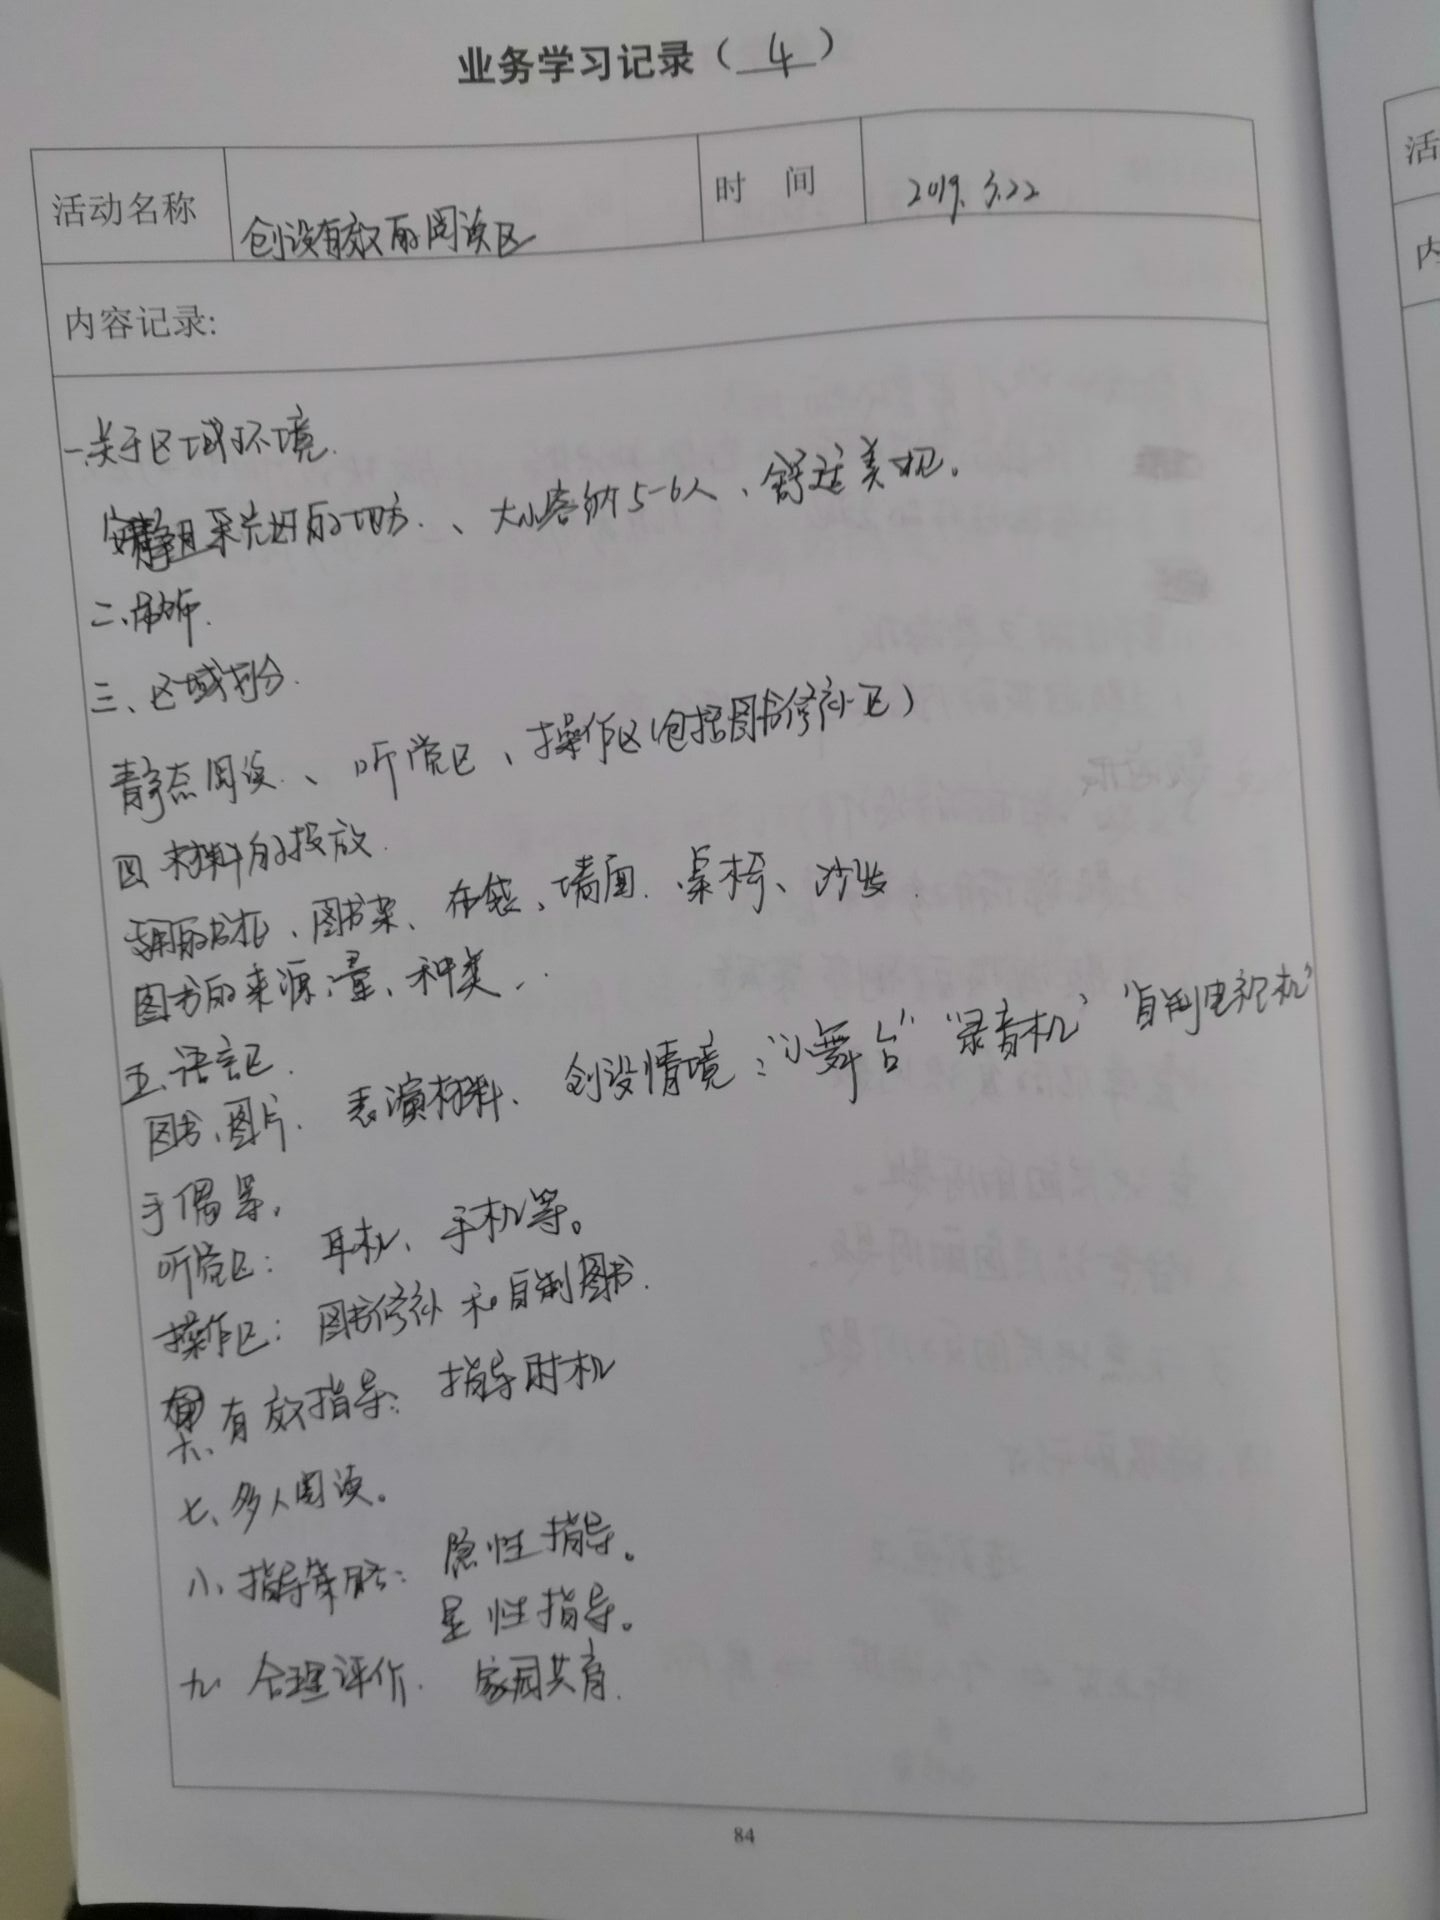 业务学习记录（4）
活动名称 创设有效的阅读区 时 间 2019.3.22
内容记录:
一.关于区域环境.
安静且采光好的地方.、大小容纳5-6人、舒适美观。
二、布饰.
三、区域划分.
静态阅读、听觉区、操作区(包括图书修补区)
四 材料的投放.
书柜、图书架、布袋、墙面.桌椅、沙发.
图书的来源、量、种类.
五.语言区.
图书、图片. 表演材料. 创设情境:“小舞台”“录音机”“自制电视机”
手偶等.
听觉区: 耳机、手机等。
操作区: 图书修补和自制图书.
六、有效指导: 指导时机
七、多人阅读。
八、指导策略: 隐性指导。
显性指导。
九. 合理评价. 家园共育.
84
活
内